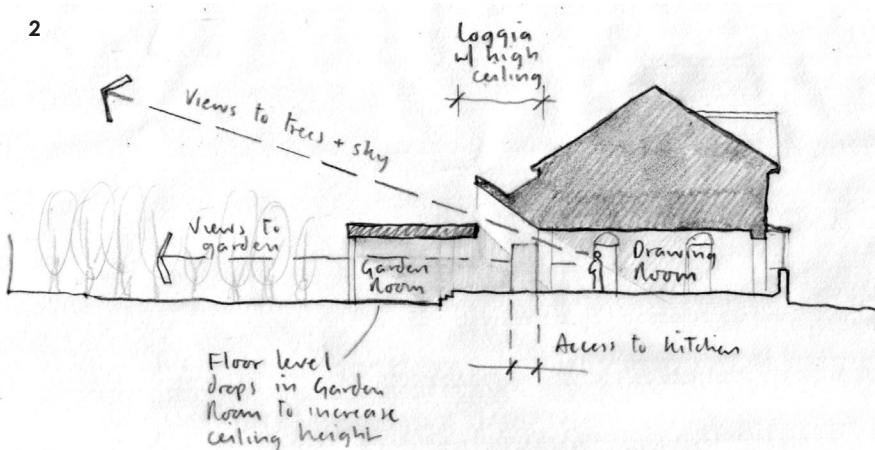 2
Loggia
w/ high
ceiling
Views to trees + sky
Views to
garden
Garden
Room
Drawing
Room
Access to kitchen
Floor level
drops in Garden
Room to increase
ceiling height